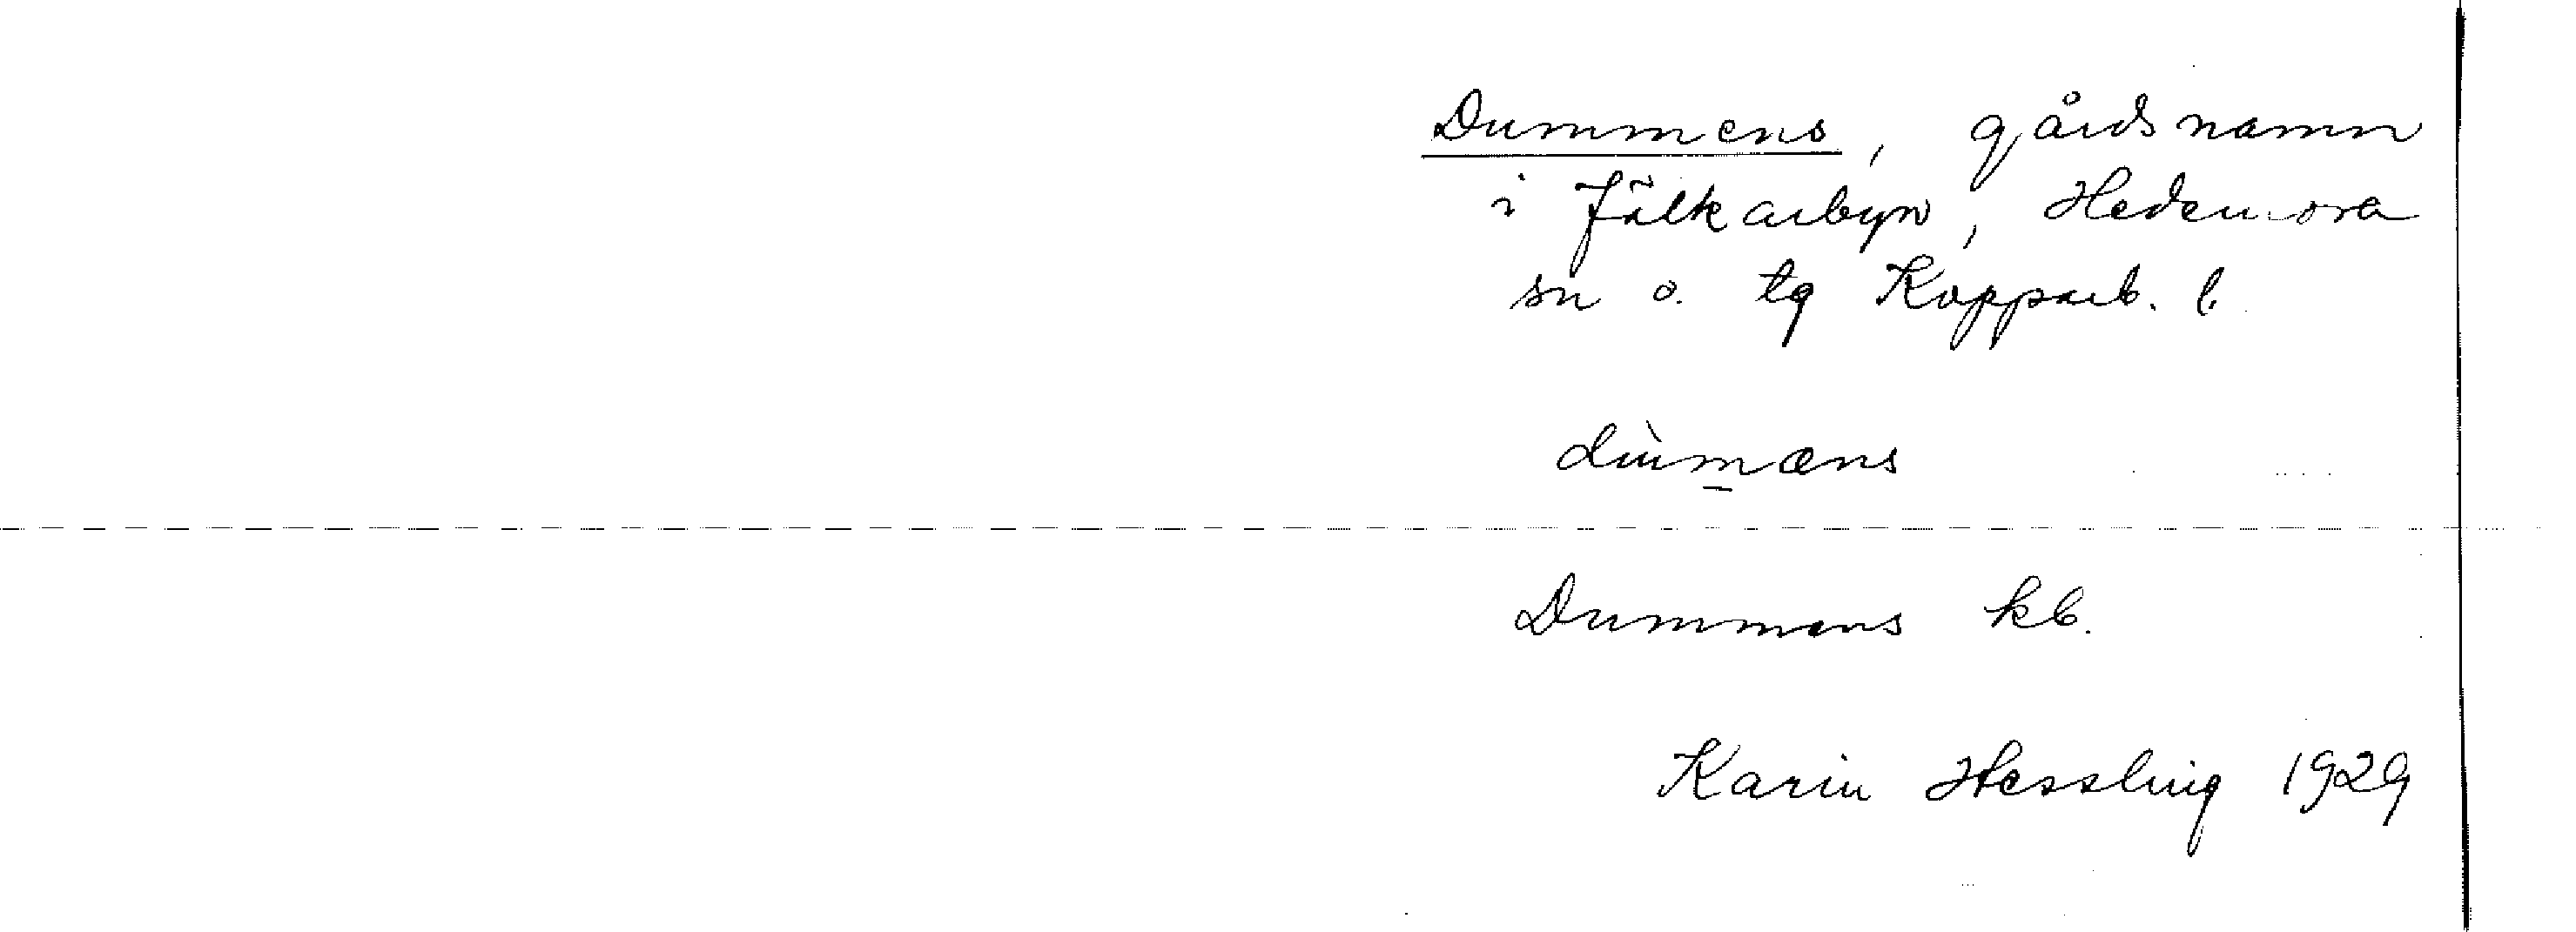 Dummens, gårdsnamn
i Jälkarbyn, Hedemora
sn o. tg Kopparb. l.
dùmæns
Dummens kb.
Karin Hessling 1929